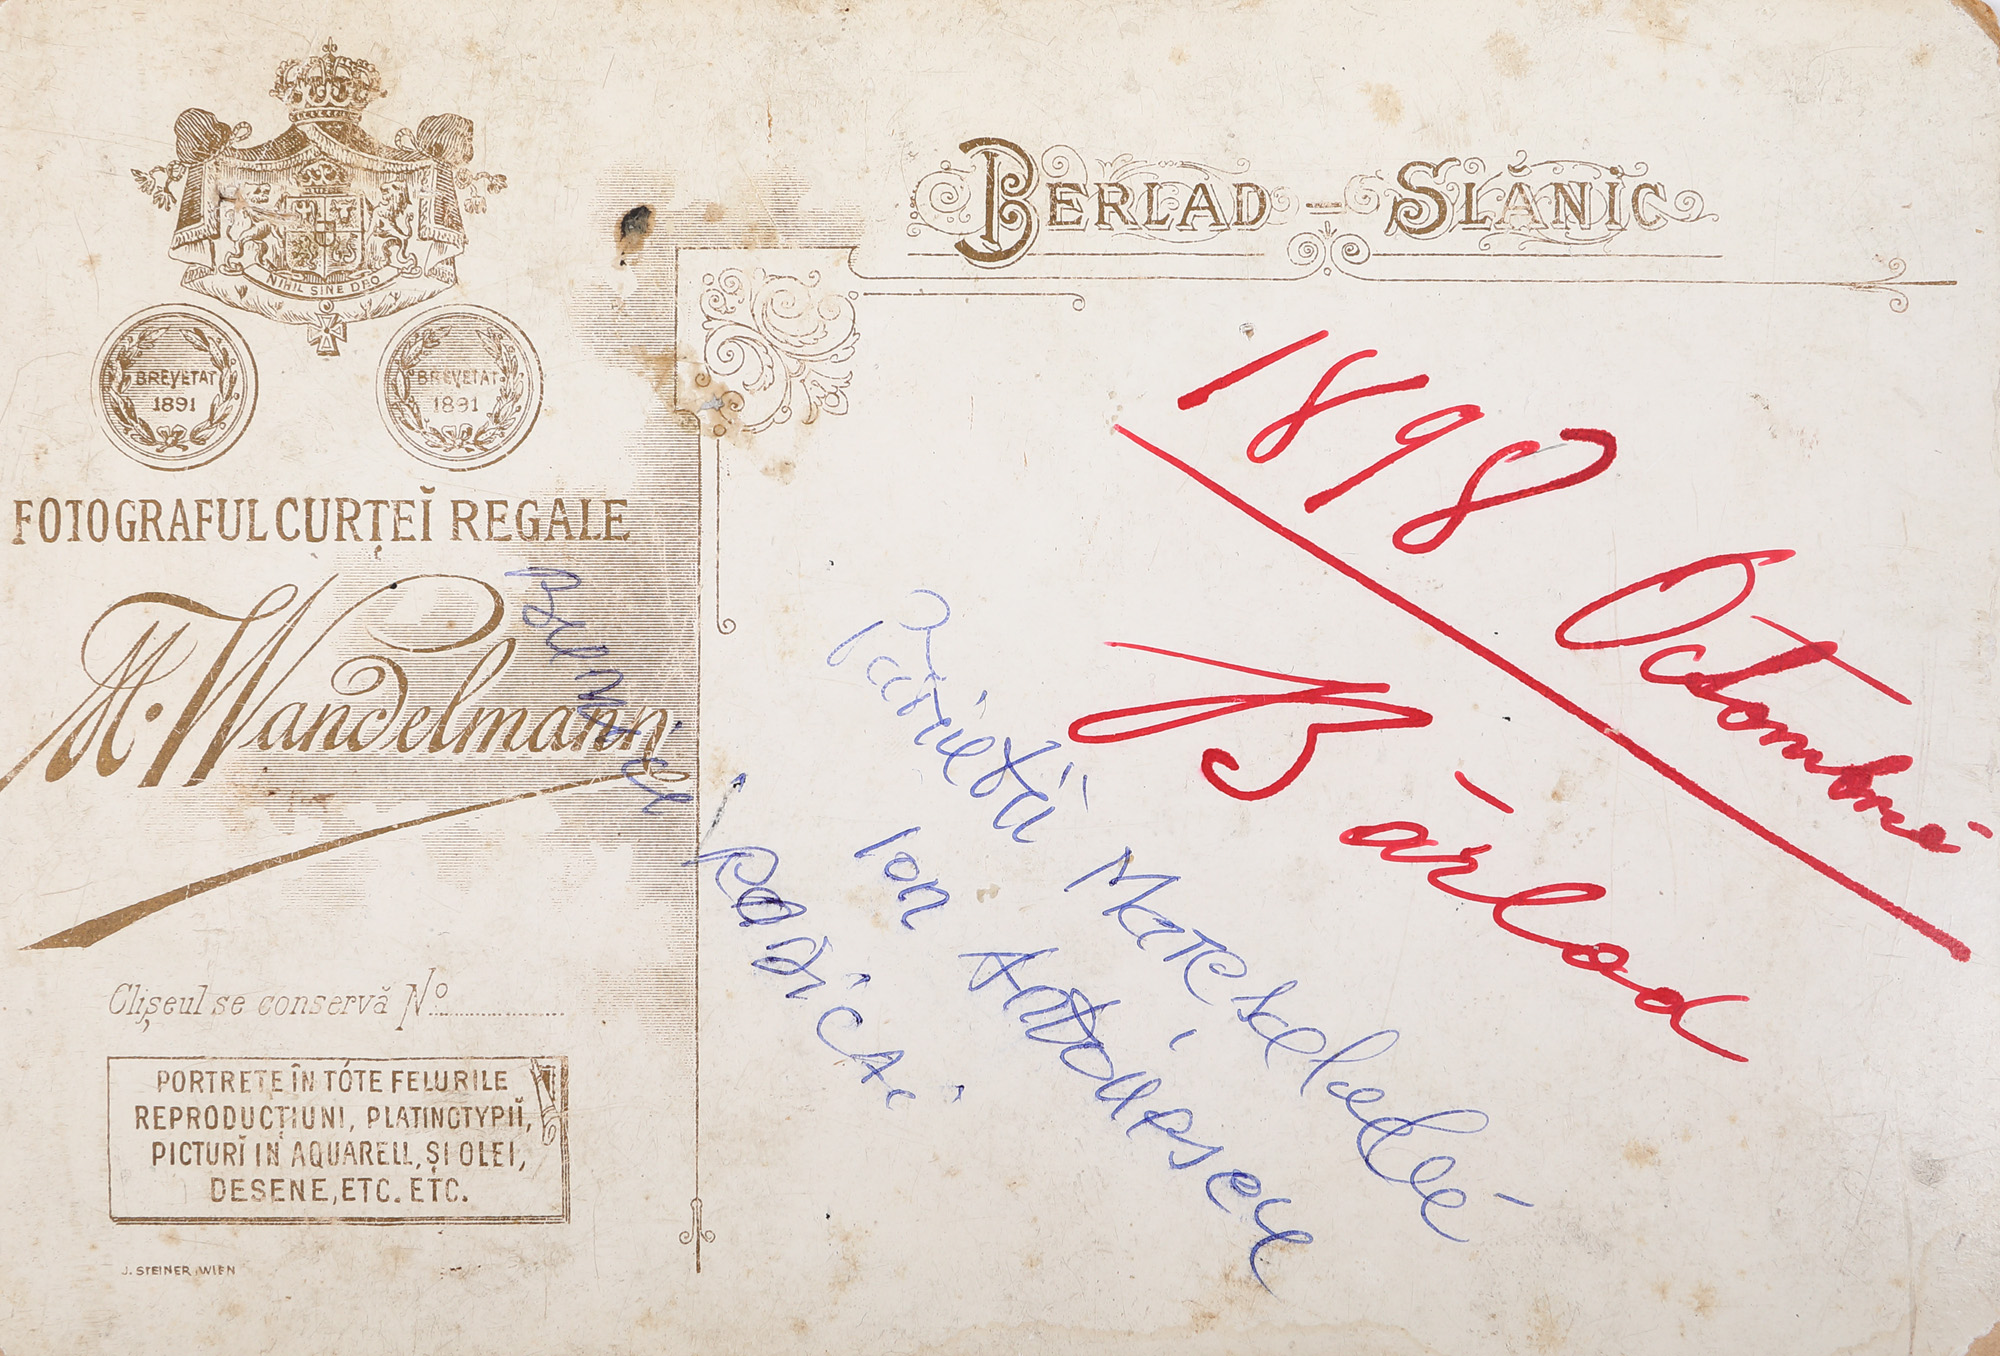 BERLAD – SLĂNIC
NIHIL SINE DEO
BREVETAT
1891
BREVETAT
1891
FOTOGRAFUL CURȚEĬ REGALE
M. Wandelmann
Clișeul se conservă No
PORTRETE ÎN TÓTE FELURILE
REPRODUCȚIUNI, PLATINOTYPIĬ,
PICTURĬ IN AQUARELL, ȘI OLEI,
DESENE, ETC. ETC.
J. STEINER, WIEN
1898 Octombrie
Bârlad
Părietii
Ion Antonescu